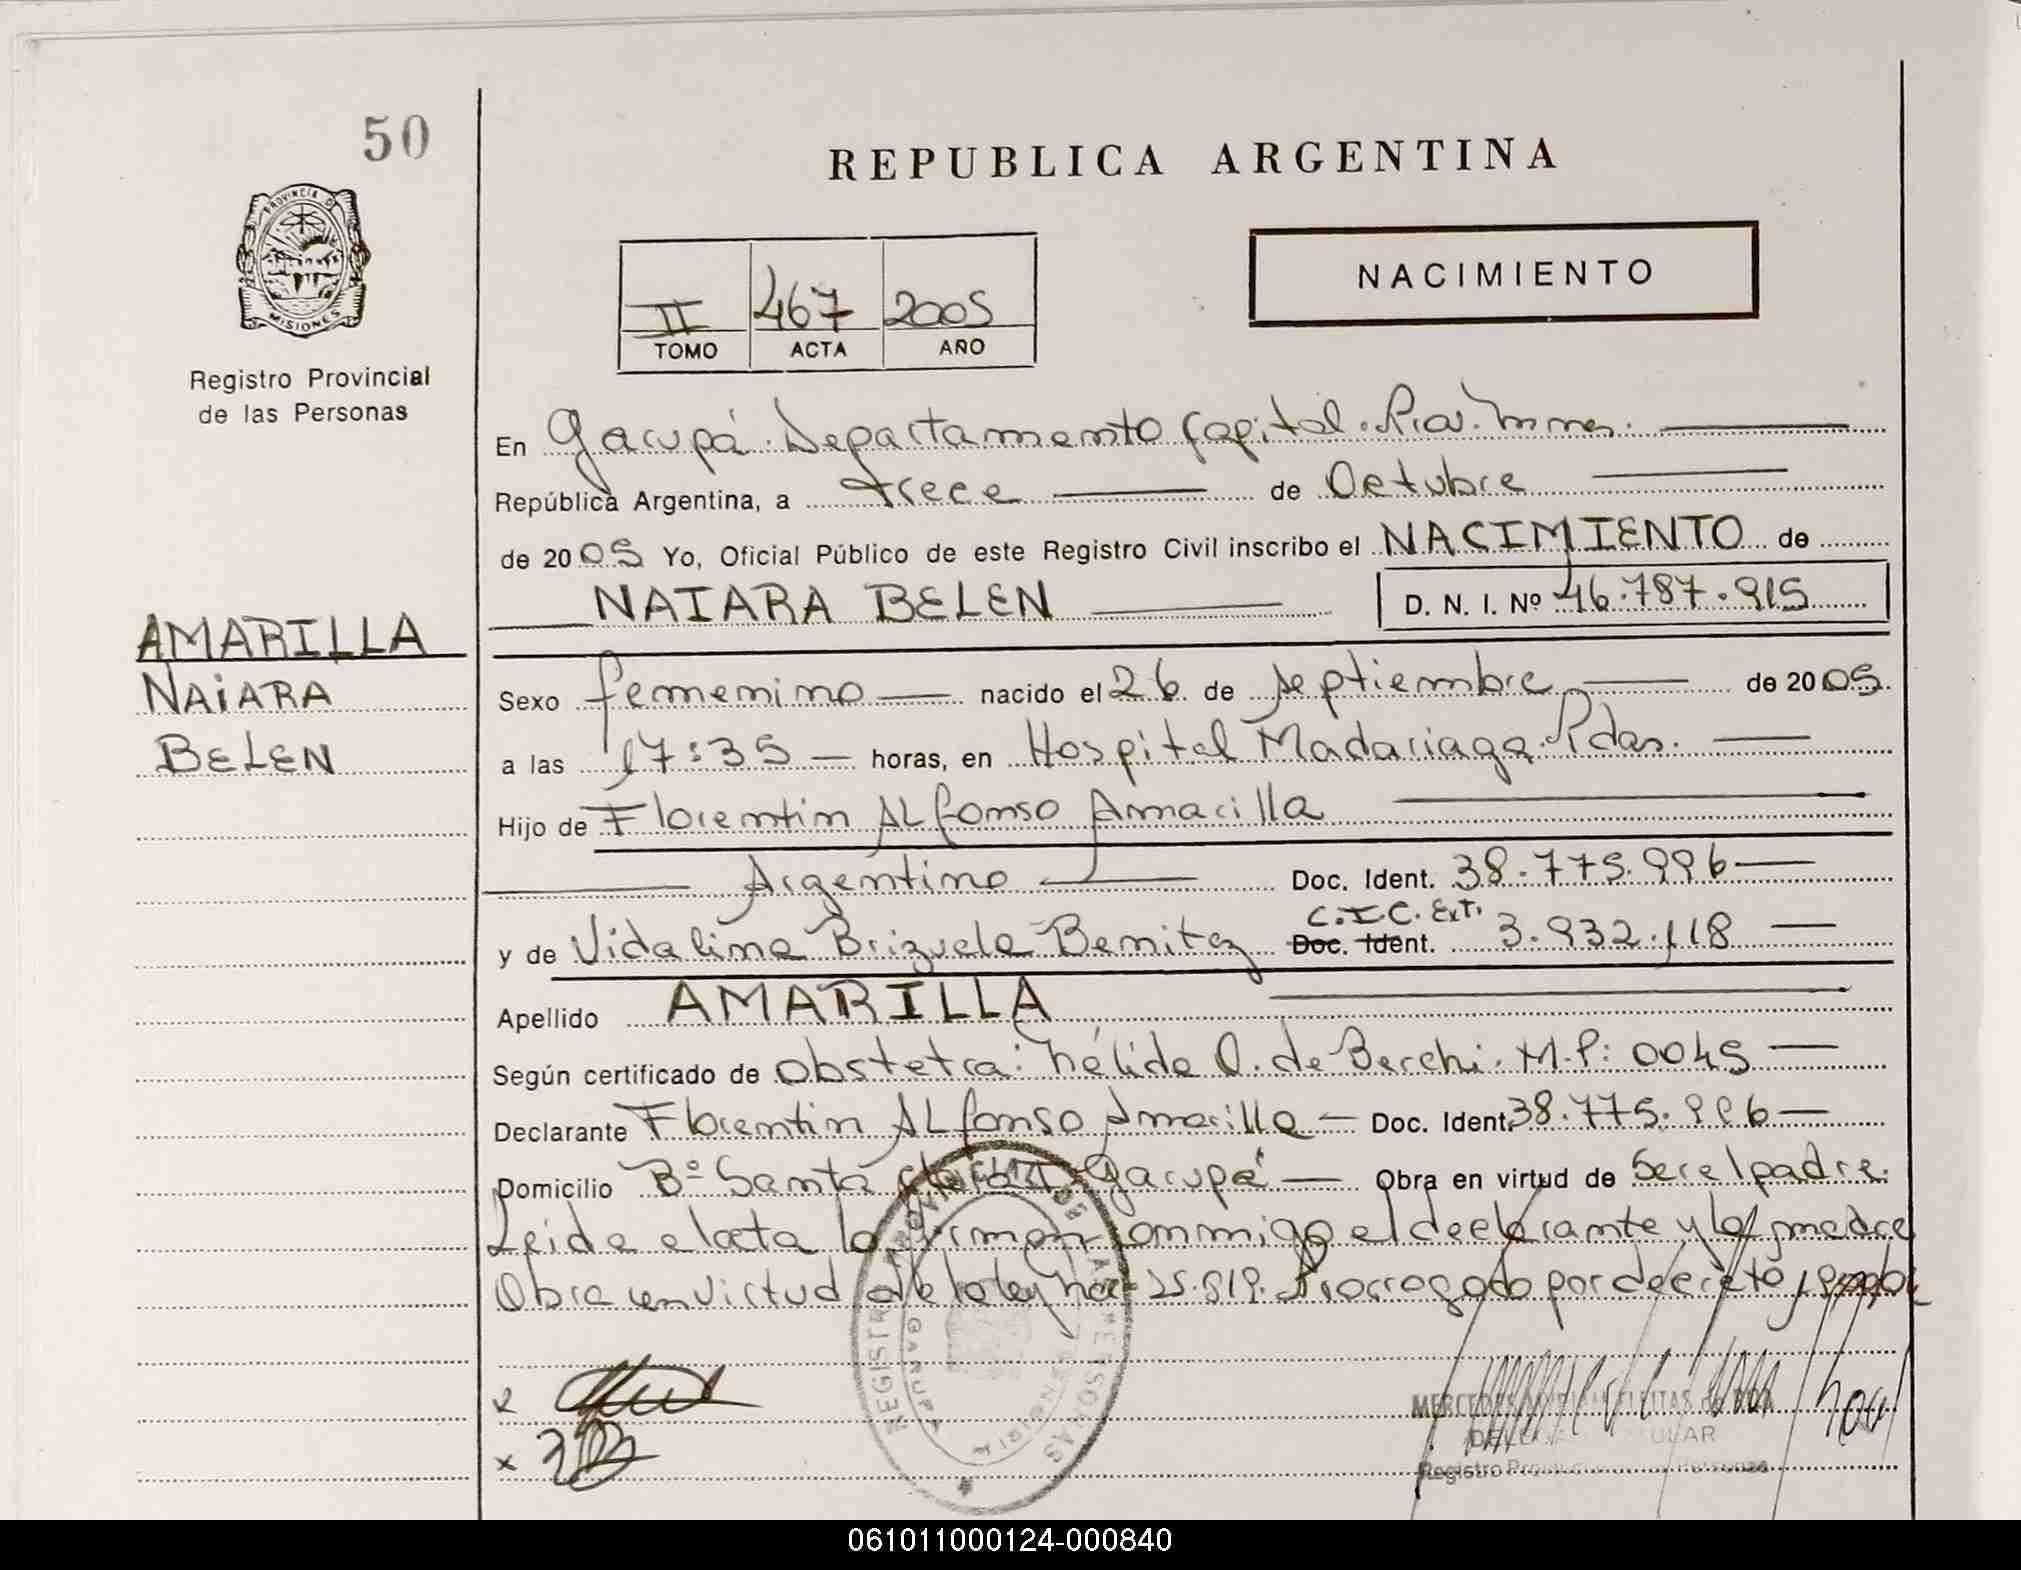 50
REPUBLICA ARGENTINA
PROVINCIA DE
MISIONES
Registro Provincial
de las Personas
NACIMIENTO
II 467 2005
TOMO ACTA AÑO
En Garupá. Departamento Capital. Prov. Mnes.
República Argentina, a trece de Octubre
de 2005 Yo, Oficial Público de este Registro Civil inscribo el NACIMIENTO de
NAIARA BELEN D. N. I. Nº 46.787.915
AMARILLA
NAIARA
BELEN
Sexo femenino nacido el 26 de septiembre de 2005
a las 17:35 horas, en Hospital Madariaga. Pdas.
Hijo de Florentin ALfonso Amarilla
Argentino Doc. Ident. 38.775.996
C.I.C. Ext.
y de Vidalina Brizuela Benitez Doc. Ident. 3.932.118
Apellido AMARILLA
Según certificado de obstetra: Nélida O. de Berchi. M.P: 0045
Declarante Florentin ALfonso Amarilla Doc. Ident. 38.775.996
Domicilio Bº Santa Garupá Obra en virtud de ser el padre.
Leida el acta la firman conmigo el declarante y la madre
Obra en virtud de la ley nro 25.819. Prorrogado por decreto
REGISTRO PROVINCIAL DE LAS PERSONAS
GARUPA
MERCEDES
DELEGADA TITULAR
Registro Provincial de las Personas
x
x
061011000124-000840